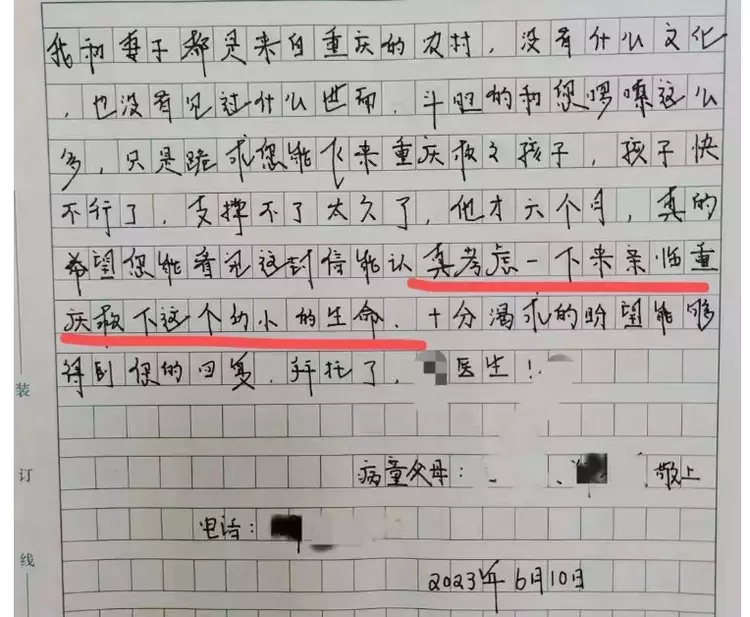 我和妻子都是来自重庆的农村，没有什么文化
，也没有见过什么世面，斗胆的和您啰嗦这么
多，只是跪求您能飞来重庆救救孩子，孩子快
不行了，支撑不了太久了，他才六个月，真的
希望您能看见这封信能认真考虑一下来亲临重
庆救下这个幼小的生命，十分渴求的盼望能够
得到您的回复，拜托了，医生！
病童父母：、敬上
电话：
2023年6月10日
装
订
线